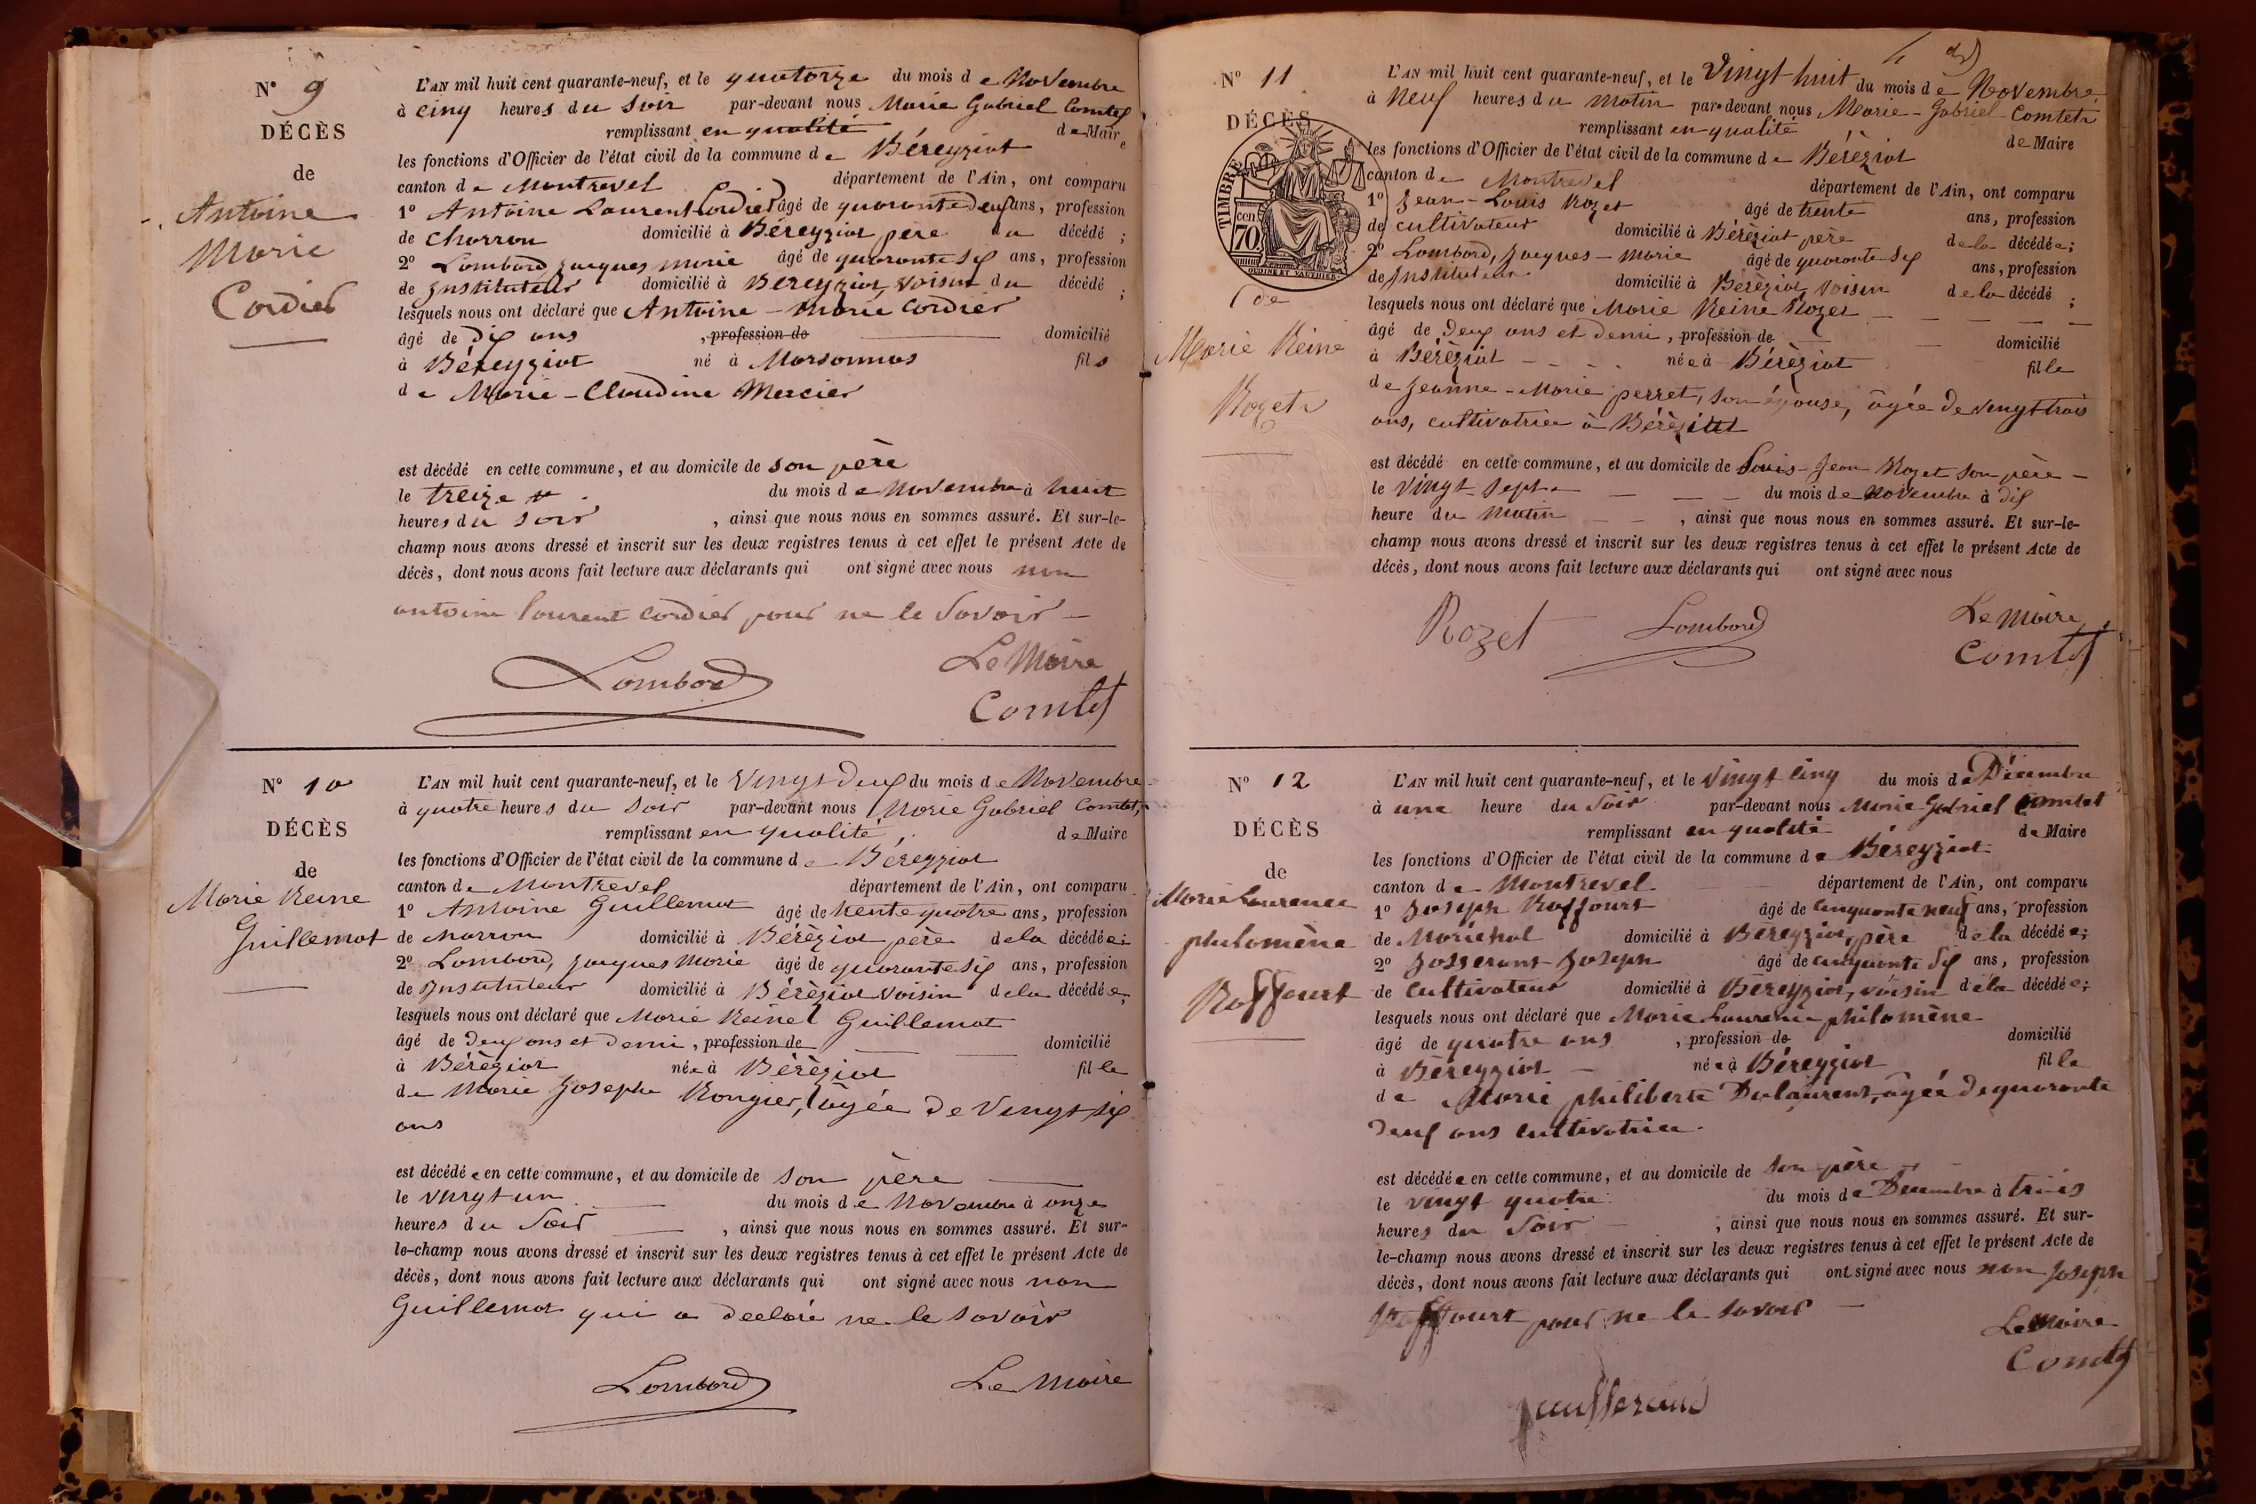 N° 9
DÉCÈS
de
Antoine
Marie
Cordier
L'AN mil huit cent quarante-neuf, et le quatorze du mois de Novembre
à cinq heures du soir par-devant nous Marie Gabriel Comtet
remplissant en qualité de Maire
les fonctions d'Officier de l'état civil de la commune de Béreyziat
canton de Montrevel département de l'Ain, ont comparu
1° Antoine Laurent Cordier âgé de quarante deux ans, profession
de charron domicilié à Béreyziat père du décédé ;
2° Lombard jacques marie âgé de quarante six ans, profession
de instituteur domicilié à Béreyziat, voisin du décédé ;
lesquels nous ont déclaré que Antoine - Marie Cordier
âgé de dix ans , profession de domicilié
à Béreyziat né à Marsonnas fils
de Marie - Claudine Mercier
est décédé en cette commune, et au domicile de son père
le treize du mois de Novembre à huit
heures du soir , ainsi que nous nous en sommes assuré. Et sur-le-
champ nous avons dressé et inscrit sur les deux registres tenus à cet effet le présent Acte de
décès, dont nous avons fait lecture aux déclarants qui ont signé avec nous non
antoine laurent cordier pour ne le savoir —
Lombard Le Maire
Comtet
N° 10
DÉCÈS
de
Marie Reine
Guillemot
L'AN mil huit cent quarante-neuf, et le Vingt deux du mois de Novembre
à quatre heures du soir par-devant nous Marie Gabriel Comtet,
remplissant en qualité de Maire
les fonctions d'Officier de l'état civil de la commune de Béreyziat
canton de Montrevel département de l'Ain, ont comparu
1° Antoine Guillemot âgé de trente quatre ans, profession
de marron domicilié à Béréziat père de la décédée;
2° Lombard, jacques Marie âgé de quarante six ans, profession
de instituteur domicilié à Béréziat voisin de la décédée;
lesquels nous ont déclaré que Marie Reine Guillemot
âgé de deux ans et demi , profession de domicilié
à Béréziat née à Béréziat fille
de Marie Josephe Rongier, âgée de Vingt six
ans
est décédée en cette commune, et au domicile de son père
le vingt un du mois de Novembre à onze
heures du soir , ainsi que nous nous en sommes assuré. Et sur-
le-champ nous avons dressé et inscrit sur les deux registres tenus à cet effet le présent Acte de
décès, dont nous avons fait lecture aux déclarants qui ont signé avec nous non
Guillemot qui a declaré ne le savoir
Lombard Le Maire
N° 11
DÉCÈS
TIMBRE
cen
70
OUDINE ET VAUTHIER
de
Marie Reine
Rozet
L'AN mil huit cent quarante-neuf, et le Vingt huit du mois de Novembre
à Neuf heures du matin par-devant nous Marie - Gabriel - Comtet
remplissant en qualité de Maire
les fonctions d'Officier de l'état civil de la commune de Béréziat
canton de Montrevel département de l'Ain, ont comparu
1° Jean - Louis Rozet âgé de trente ans, profession
de cultivateur domicilié à Béréziat père de la décédée;
2° Lombard, Jacques - Marie âgé de quarante six ans, profession
de instituteur domicilié à Béréziat, voisin de la décédé ;
lesquels nous ont déclaré que Marie Reine Rozet
âgé de deux ans et demi , profession de domicilié
à Béréziat née à Béréziat fille
de Jeanne - Marie perret, son épouse, âgée de vingt trois
ans, cultivatrice à Béréziat
est décédé en cette commune, et au domicile de Louis - Jean Rozet son père -
le vingt sept du mois de Novembre à dix
heure du matin , ainsi que nous nous en sommes assuré. Et sur-le-
champ nous avons dressé et inscrit sur les deux registres tenus à cet effet le présent Acte de
décès, dont nous avons fait lecture aux déclarants qui ont signé avec nous
Rozet Lombard Le Maire
Comtet
N° 12
DÉCÈS
de
Marie Laurence
philomène
Roffourt
L'AN mil huit cent quarante-neuf, et le Vingt cinq du mois de Décembre
à une heure du soir par-devant nous Marie Gabriel Comtet
remplissant en qualité de Maire
les fonctions d'Officier de l'état civil de la commune de Béreyziat
canton de Montrevel département de l'Ain, ont comparu
1° Joseph Roffourt âgé de cinquante neuf ans, profession
de Maréchal domicilié à Béreyziat, père de la décédée;
2° Josserant Joseph âgé de cinquante dix ans, profession
de cultivateur domicilié à Béreyziat, voisin de la décédée;
lesquels nous ont déclaré que Marie Laurence philomène
âgé de quatre ans , profession de domicilié
à Béreyziat née à Béreyziat fille
de Marie philiberte Dulaurent, âgée de quarante
deux ans cultivatrice.
est décédée en cette commune, et au domicile de son père
le vingt quatre du mois de Décembre à trois
heures du soir , ainsi que nous nous en sommes assuré. Et sur-
le-champ nous avons dressé et inscrit sur les deux registres tenus à cet effet le présent Acte de
décès, dont nous avons fait lecture aux déclarants qui ont signé avec nous non Joseph
Roffourt pour ne le savoir —
Le Maire
Comtet